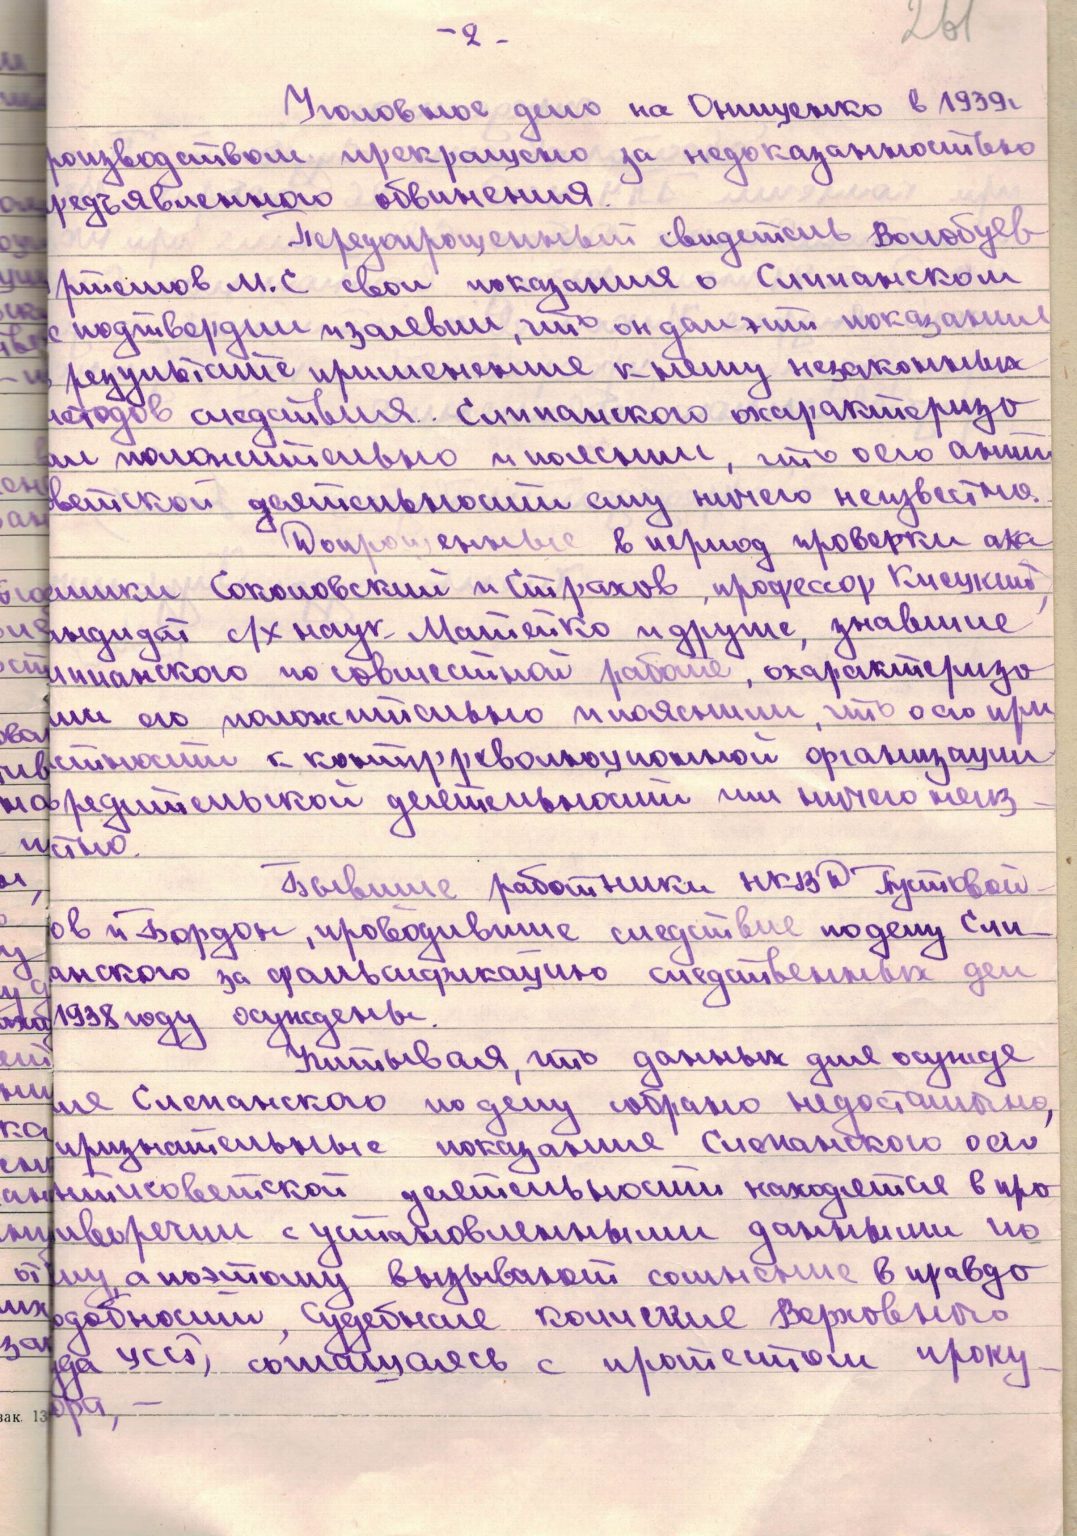 - 2 -
261
Уголовное дело на Онищенко в 1939г
роизводством прекращено за недоказанностью
редъявленного обвинения.
Передопрошенный свидетель Волобуев
М.С свои показания о Слипанском
подтвердил и заявил, что он дал эти показания
результате применения к нему незаконных
етодов следствия. Слипанского охарактеризо
ал положительно и пояснил, что о его анти
ветской деятельности ему ничего неизвестно.
Допрошенные в период проверки ака
емики Соколовский и Страхов, профессор Кисуций,
андидат с/х наук Матейко и другие, знавшие
ипанского по совместной работе, охарактеризо
ли его положительно и пояснили, что о его при
стности к контрреволюционной организации
редительской деятельности им ничего неиз-
стно.
Бывшие работники НКВД Пустовой-
ов и Бордон, проводившие следствие по делу Сли-
анского за фальсификацию следственных дел
1938 году осуждены.
Учитывая, что данных для осужде
ия Слепанского по делу собрано недостаточно,
признательные показания Слепанского о его
антисоветской деятельности находятся в про
иворечии с установленными данными по
лу, а поэтому вызывают сомнение в правдо
одобности, Судебная колегия Верховного
уда УССР, соглашаясь с протестом проку-
ора, -
зак. 13